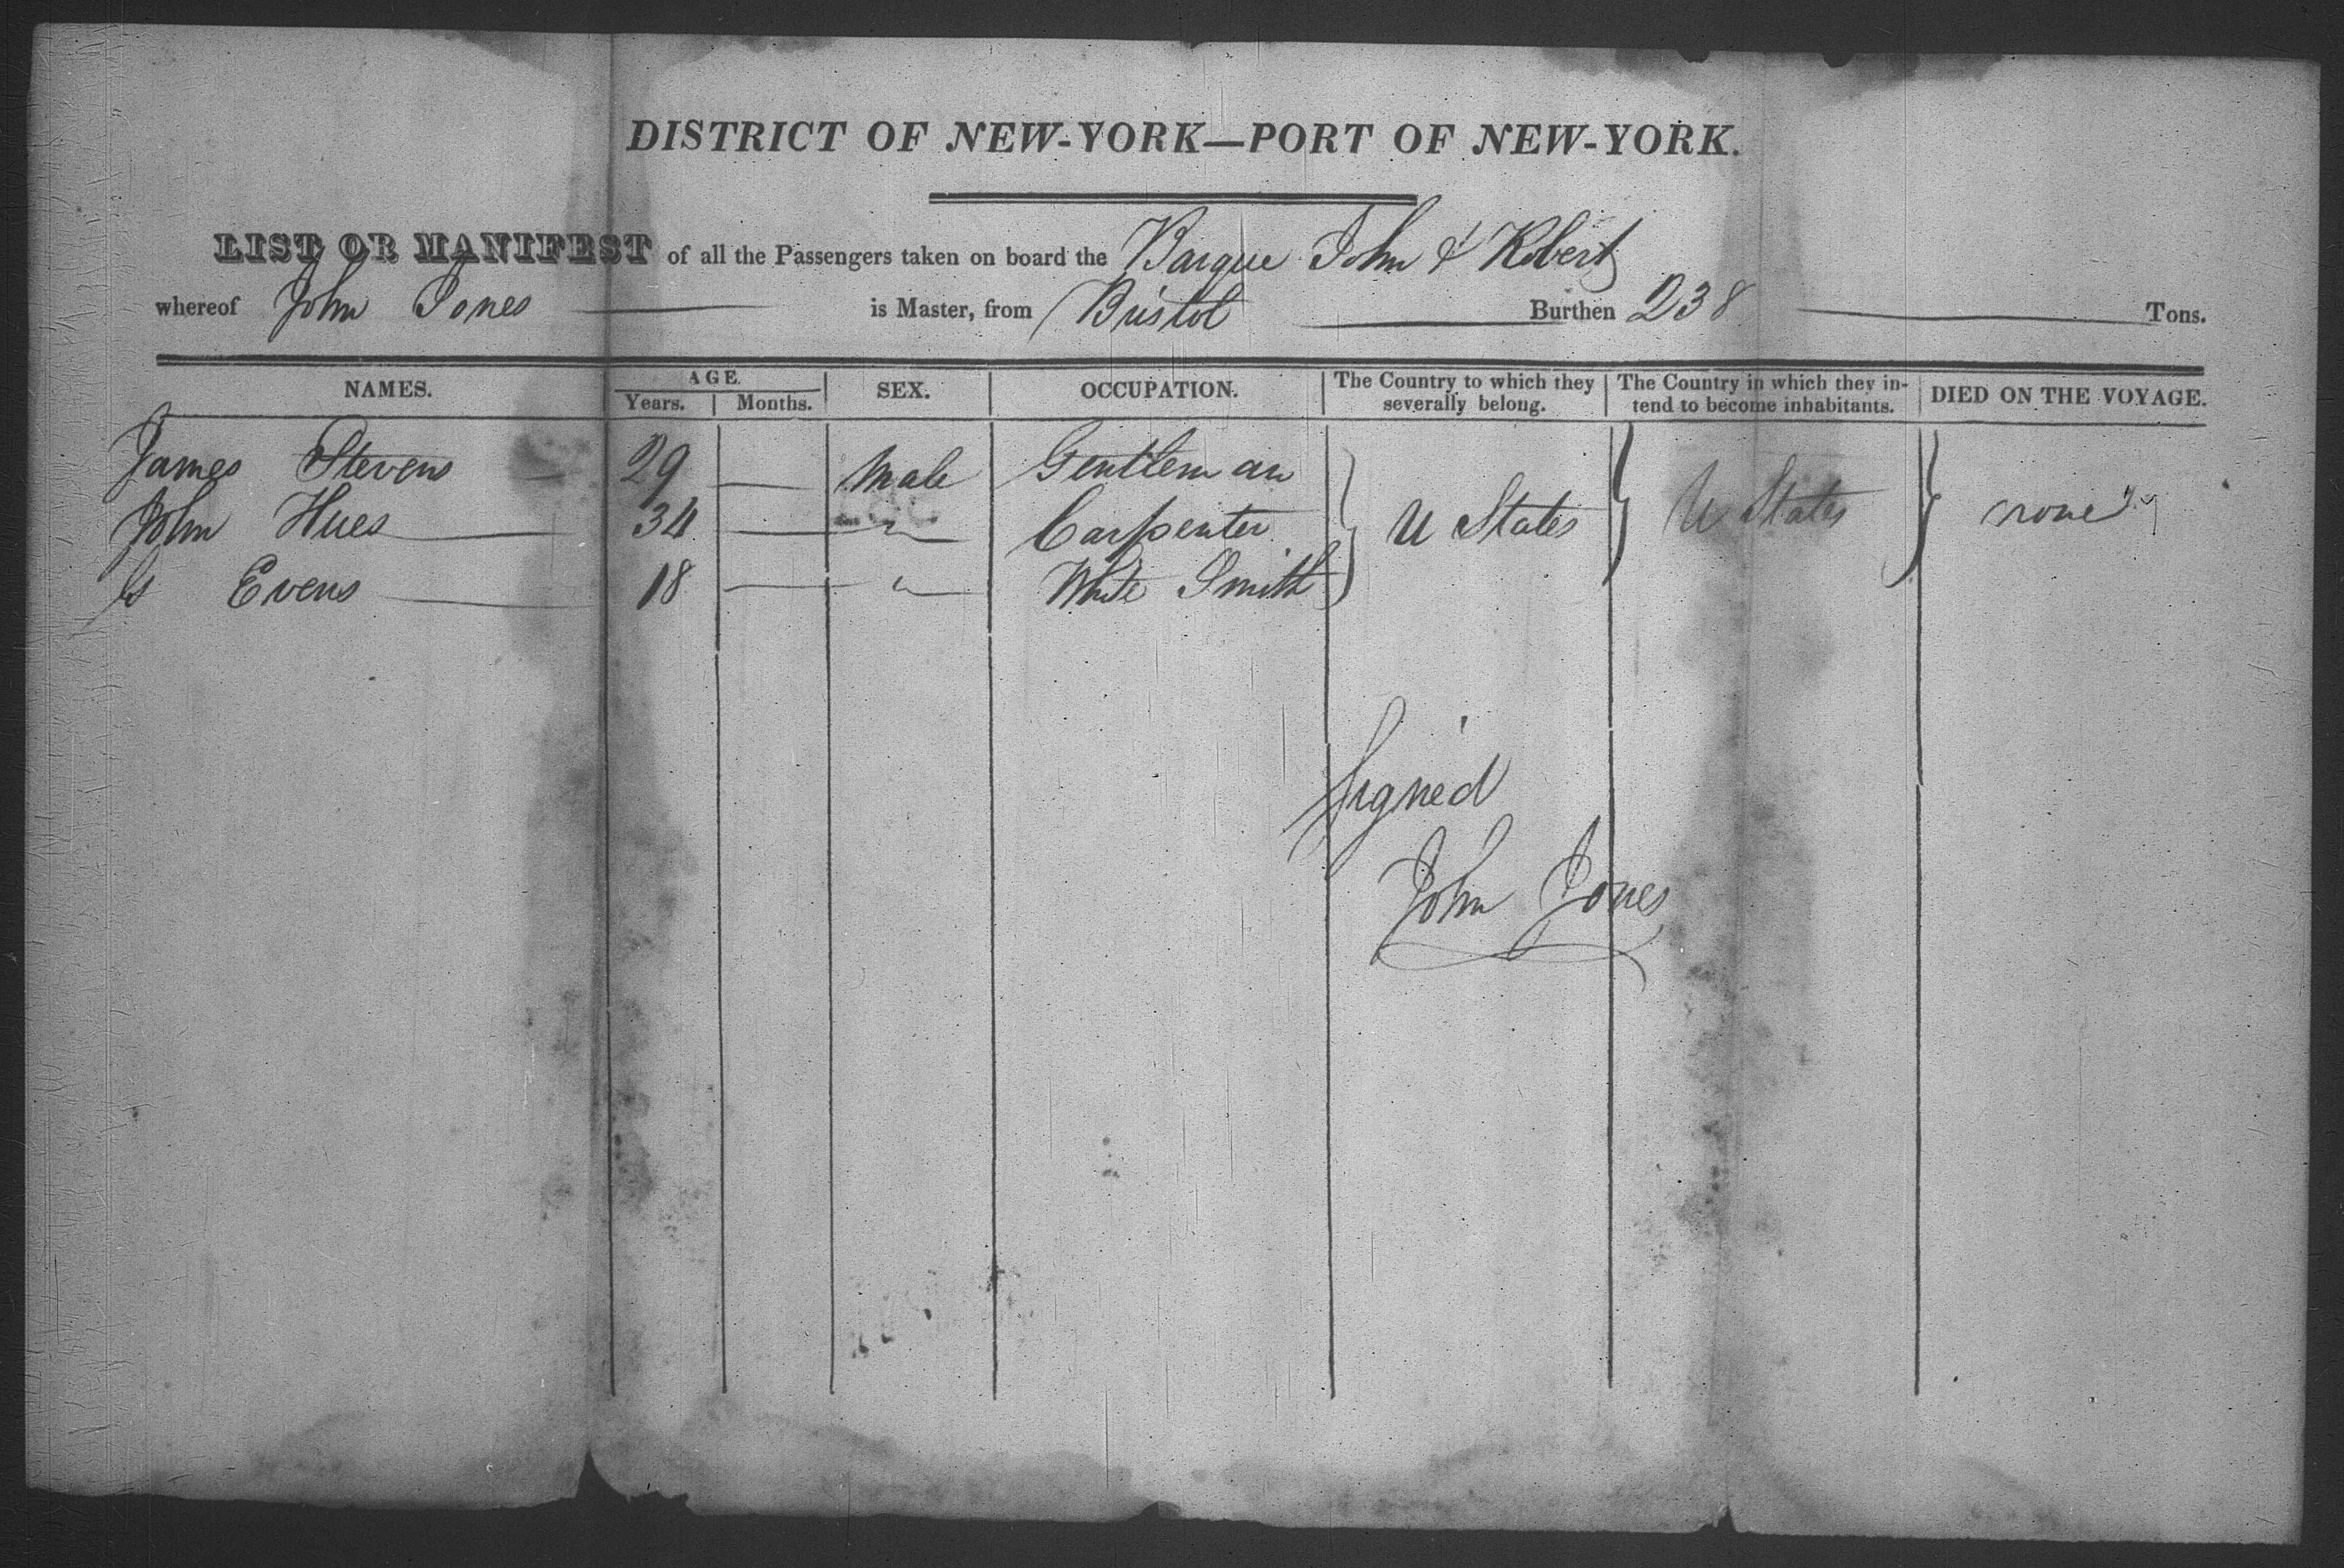 DISTRICT OF NEW-YORK—PORT OF NEW-YORK.
LIST OR MANIFEST of all the Passengers taken on board the Barque John & Robert
whereof John Jones is Master, from Bristol Burthen 238 Tons.
NAMES. AGE. Years. Months. SEX. OCCUPATION. The Country to which they severally belong. The Country in which they intend to become inhabitants. DIED ON THE VOYAGE.
James Stevens 29 — Male Gentleman
John Hues — 34 — " Carpenter U States U States none
G Evens — 18 — " White Smith
Signed
John Jones